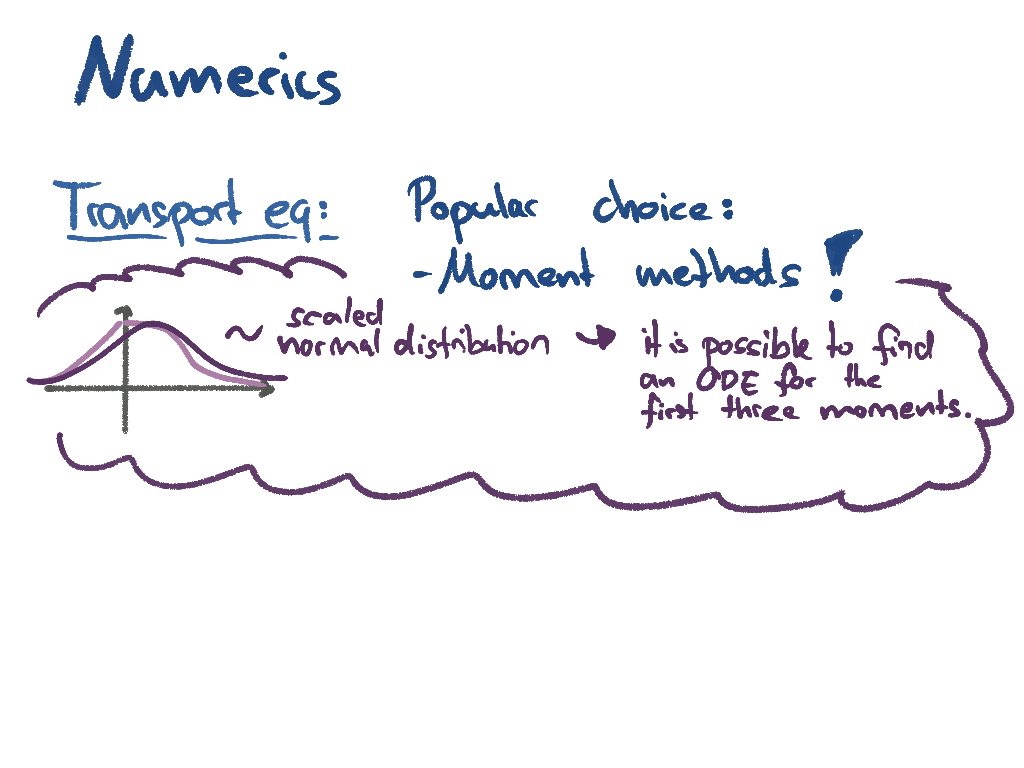 Numerics
Transport eq:
Popular choice:
- Moment methods !
~ scaled
normal distribution → it is possible to find
an ODE for the
first three moments.